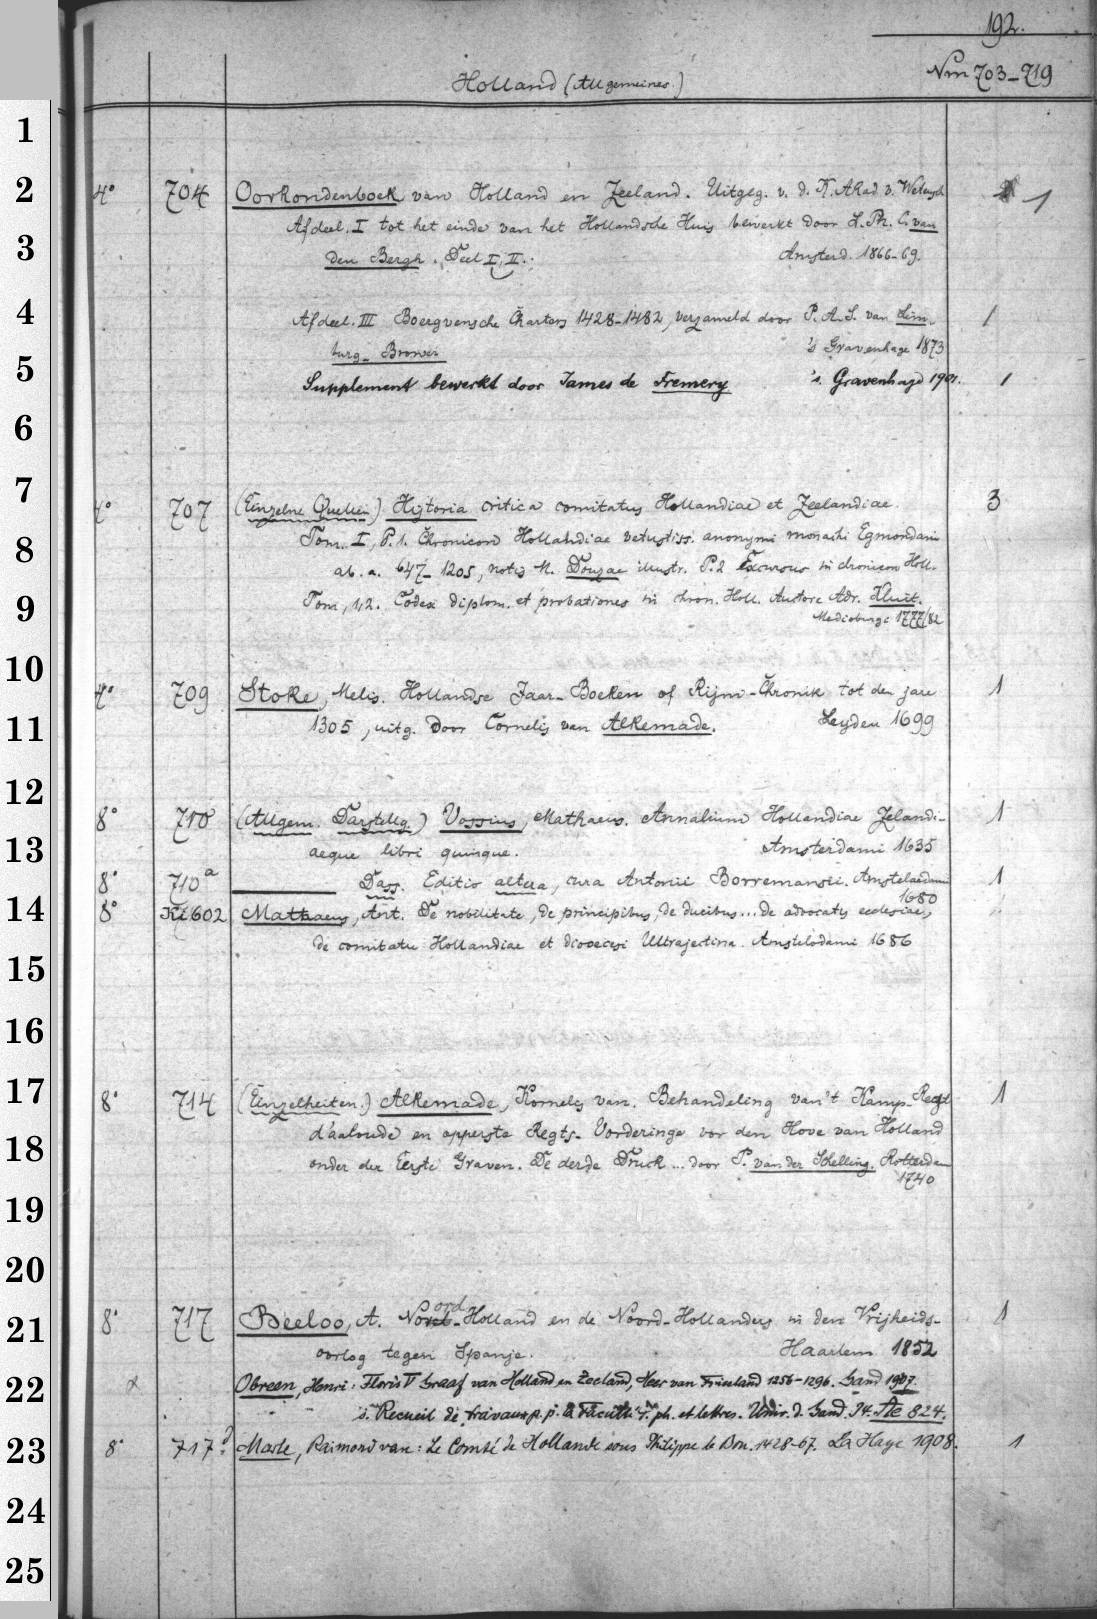 192.
Nrn 703-719
Holland (Allgemeines.)
1
2
3
4
5
6
7
8
9
10
11
12
13
14
15
16
17
18
19
20
21
22
23
24
25
4° 704 Oorkondenboek van Holland en Zeeland. Uitgeg. v. d. K. Akad. v. Wetensch 1
Afdeel. I tot het einde van het Hollandsche Huis bewerkt door L. Ph. C. van
den Bergh. Deel I, II. Amsterd. 1866-69.
Afdeel. III Boergoensche Charters 1428-1482, verzameld door P. A. S. van Lim- 1
burg-Brower 's Gravenhage 1873
Supplement bewerkt door James de Fremery 's Gravenhage 1901. 1
4° 707 (Einzelne Quellen) Historia critica comitatus Hollandiae et Zeelandiae. 3
Tom. I, P. 1. Chronicon Hollandiae vetustiss. anonymi monachi Egmondani
ab. a. 647-1205, notis N. Douzae illustr. P. 2 Excursus in chronicon Holl.
Tom, 1,2. Codex diplom. et probationes in chron. Holl. Auctore Adr. Kluit.
Medioburgi 1777/82
4° 709 Stoke, Melis. Hollandse Jaar-Boeken of Rijm-Chronik tot den jare 1
1305, uitg. door Cornelis van Alkemade. Leyden 1699
8° 710 (Allgem. Darstellg.) Vossius, Mathaeus. Annalium Hollandiae Zelandi- 1
aeque libri quinque. Amsterdami 1635
8° 710a Dass. Editio altera, cura Antonii Borremansii. Amstelaedami 1
1680
8° Ki 602 Mathaeus, Ant. De nobilitate, de principibus, de ducibus... de advocatis ecclesiae,
de comitatu Hollandiae et dioecesi Ultrajectina. Amstelodami 1686
8° 714 (Einzelheiten.) Alkemade, Kornelis van. Behandeling van't Kamp-Regt 1
d'aaloude en opperste Regts-Vorderinge vor den Hove van Holland
onder der Eerste Graven. De derde Druck ... door P. van der Schelling. Rotterdam
1740
8° 717 Beeloo, A. Noord-Holland en de Noord-Hollanders in den Vrijheids- 1
oorlog tegen Spanje. Haarlem 1852
x Obreen, Henri: Floris V Graaf van Holland en Zeeland, Heer van Friesland 1256-1296. Gand 1907.
s. Recueil de travaux p. p. la Faculté d. ph. et lettres. Univ. d. Gand. 34. Ae 824.
8° 717? Marle, Raimond van: Le Comté de Hollande sous Philippe le Bon. 1428-67. La Haye 1908. 1